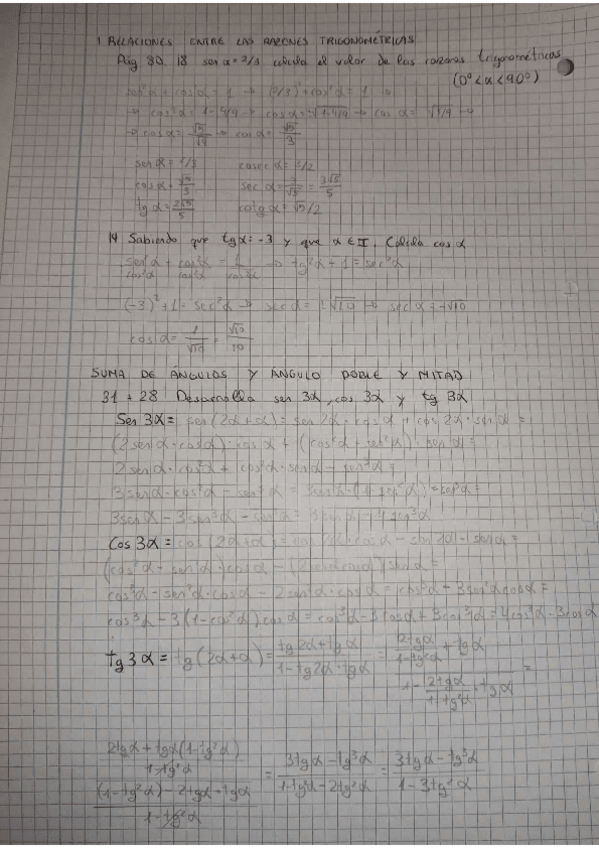 1 RELACIONES ENTRE LAS RAZONES TRIGONOMÉTRICAS
Pág 80. 18 sen α = 2/3 calcula el valor de las razones trigonométricas
(0º<α<90º)
sen²α + cos²α = 1 → (2/3)² + cos²α = 1 →
→ cos²α = 1 - 4/9 → cos α = √1-4/9 → cos α = √5/9 →
→ cos α = √5/√9 → cos α = √5/3
sen α = 2/3 cosec α = 3/2
cos α = √5/3 sec α = 3/√5 = 3√5/5
tg α = 2√5/5 cotg α = √5/2
19 Sabiendo que tg α = -3 y que α ∈ II. Calcula cos α
sen²α/cos²α + cos²α/cos²α = 1/cos²α → tg²α + 1 = sec²α
(-3)² + 1 = sec²α → sec α = √10 → sec α = -√10
cos α = 1/√10 = √10/10
SUMA DE ÁNGULOS Y ÁNGULO DOBLE Y MITAD
31 + 28 Desarrolla sen 3α, cos 3α y tg 3α
Sen 3α = sen (2α+α) = sen 2α · cos α + cos 2α · sen α =
(2 sen α · cos α) · cos α + (cos²α - sen²α) · sen α =
2 sen α · cos²α + cos²α · sen α - sen³α =
3 sen α · cos²α - sen³α =
3 sen α - 3 sen³α - sen³α = 3 sen α - 4 sen³α
Cos 3α = cos (2α+α) = cos 2α · cos α - sen 2α · sen α =
(cos²α - sen²α) cos α - (2 sen α cos α) sen α =
cos³α - sen²α · cos α - 2 sen²α · cos α = cos³α - 3 sen²α cos α =
cos³α - 3(1-cos²α) cos α = cos³α - 3 cos α + 3 cos³α = 4 cos³α - 3 cos α
tg 3α = tg (2α+α) = tg 2α + tg α / 1 - tg 2α · tg α = 2 tg α / 1 - tg²α + tg α / 1 - 2 tg α / 1 - tg²α · tg α =
2 tg α + tg α (1 - tg²α) / 1 - tg²α / (1 - tg²α) - 2 tg α · tg α / 1 - tg²α = 3 tg α - tg³α / 1 - tg²α - 2 tg²α = 3 tg α - tg³α / 1 - 3 tg²α